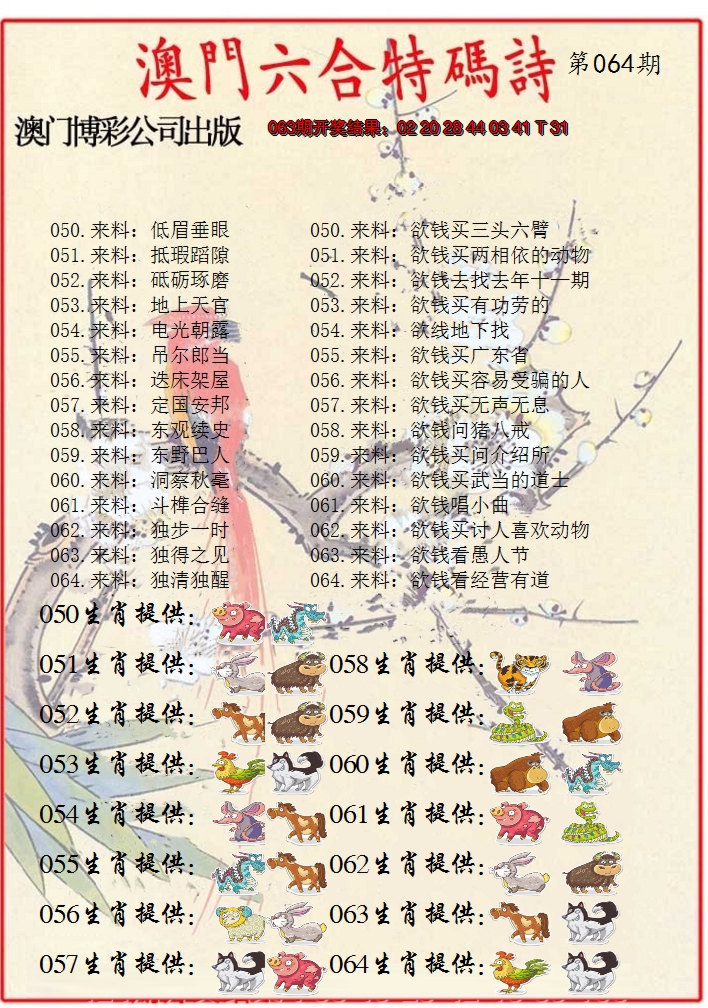 澳門六合特碼詩 第064期
澳门博彩公司出版 063期开奖结果：02 20 28 44 03 41 T 31
050.来料：低眉垂眼 050.来料：欲钱买三头六臂
051.来料：抵瑕蹈隙 051.来料：欲钱买两相依的动物
052.来料：砥砺琢磨 052.来料：欲钱去找去年十一期
053.来料：地上天官 053.来料：欲钱买有功劳的
054.来料：电光朝露 054.来料：欲线地下找
055.来料：吊尔郎当 055.来料：欲钱买广东省
056.来料：迭床架屋 056.来料：欲钱买容易受骗的人
057.来料：定国安邦 057.来料：欲钱买无声无息
058.来料：东观续史 058.来料：欲钱问猪八戒
059.来料：东野巴人 059.来料：欲钱买问介绍所
060.来料：洞察秋毫 060.来料：欲钱买武当的道士
061.来料：斗榫合缝 061.来料：欲钱唱小曲
062.来料：独步一时 062.来料：欲钱买讨人喜欢动物
063.来料：独得之见 063.来料：欲钱看愚人节
064.来料：独清独醒 064.来料：欲钱看经营有道
050生肖提供：
051生肖提供： 058生肖提供：
052生肖提供： 059生肖提供：
053生肖提供： 060生肖提供：
054生肖提供： 061生肖提供：
055生肖提供： 062生肖提供：
056生肖提供： 063生肖提供：
057生肖提供： 064生肖提供：